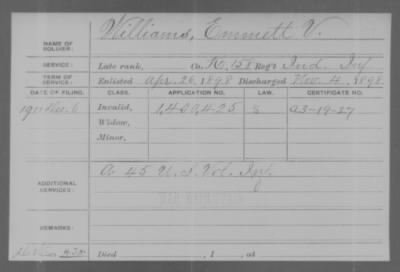 Williams, Emmett V.
NAME OF SOLDIER:
SERVICE: Late rank, Co. K, 158 Reg't Ind. Inf
TERM OF SERVICE: Enlisted Apr. 26, 1898 Discharged Nov. 4, 1898.
DATE OF FILING. CLASS. APPLICATION NO. LAW. CERTIFICATE NO.
Invalid, 1,400,425 S
Widow,
Minor,
ADDITIONAL SERVICES: 45 U.S. Vol. Inf.
WAR WITH SPAIN
REMARKS:
Died , 1 , at